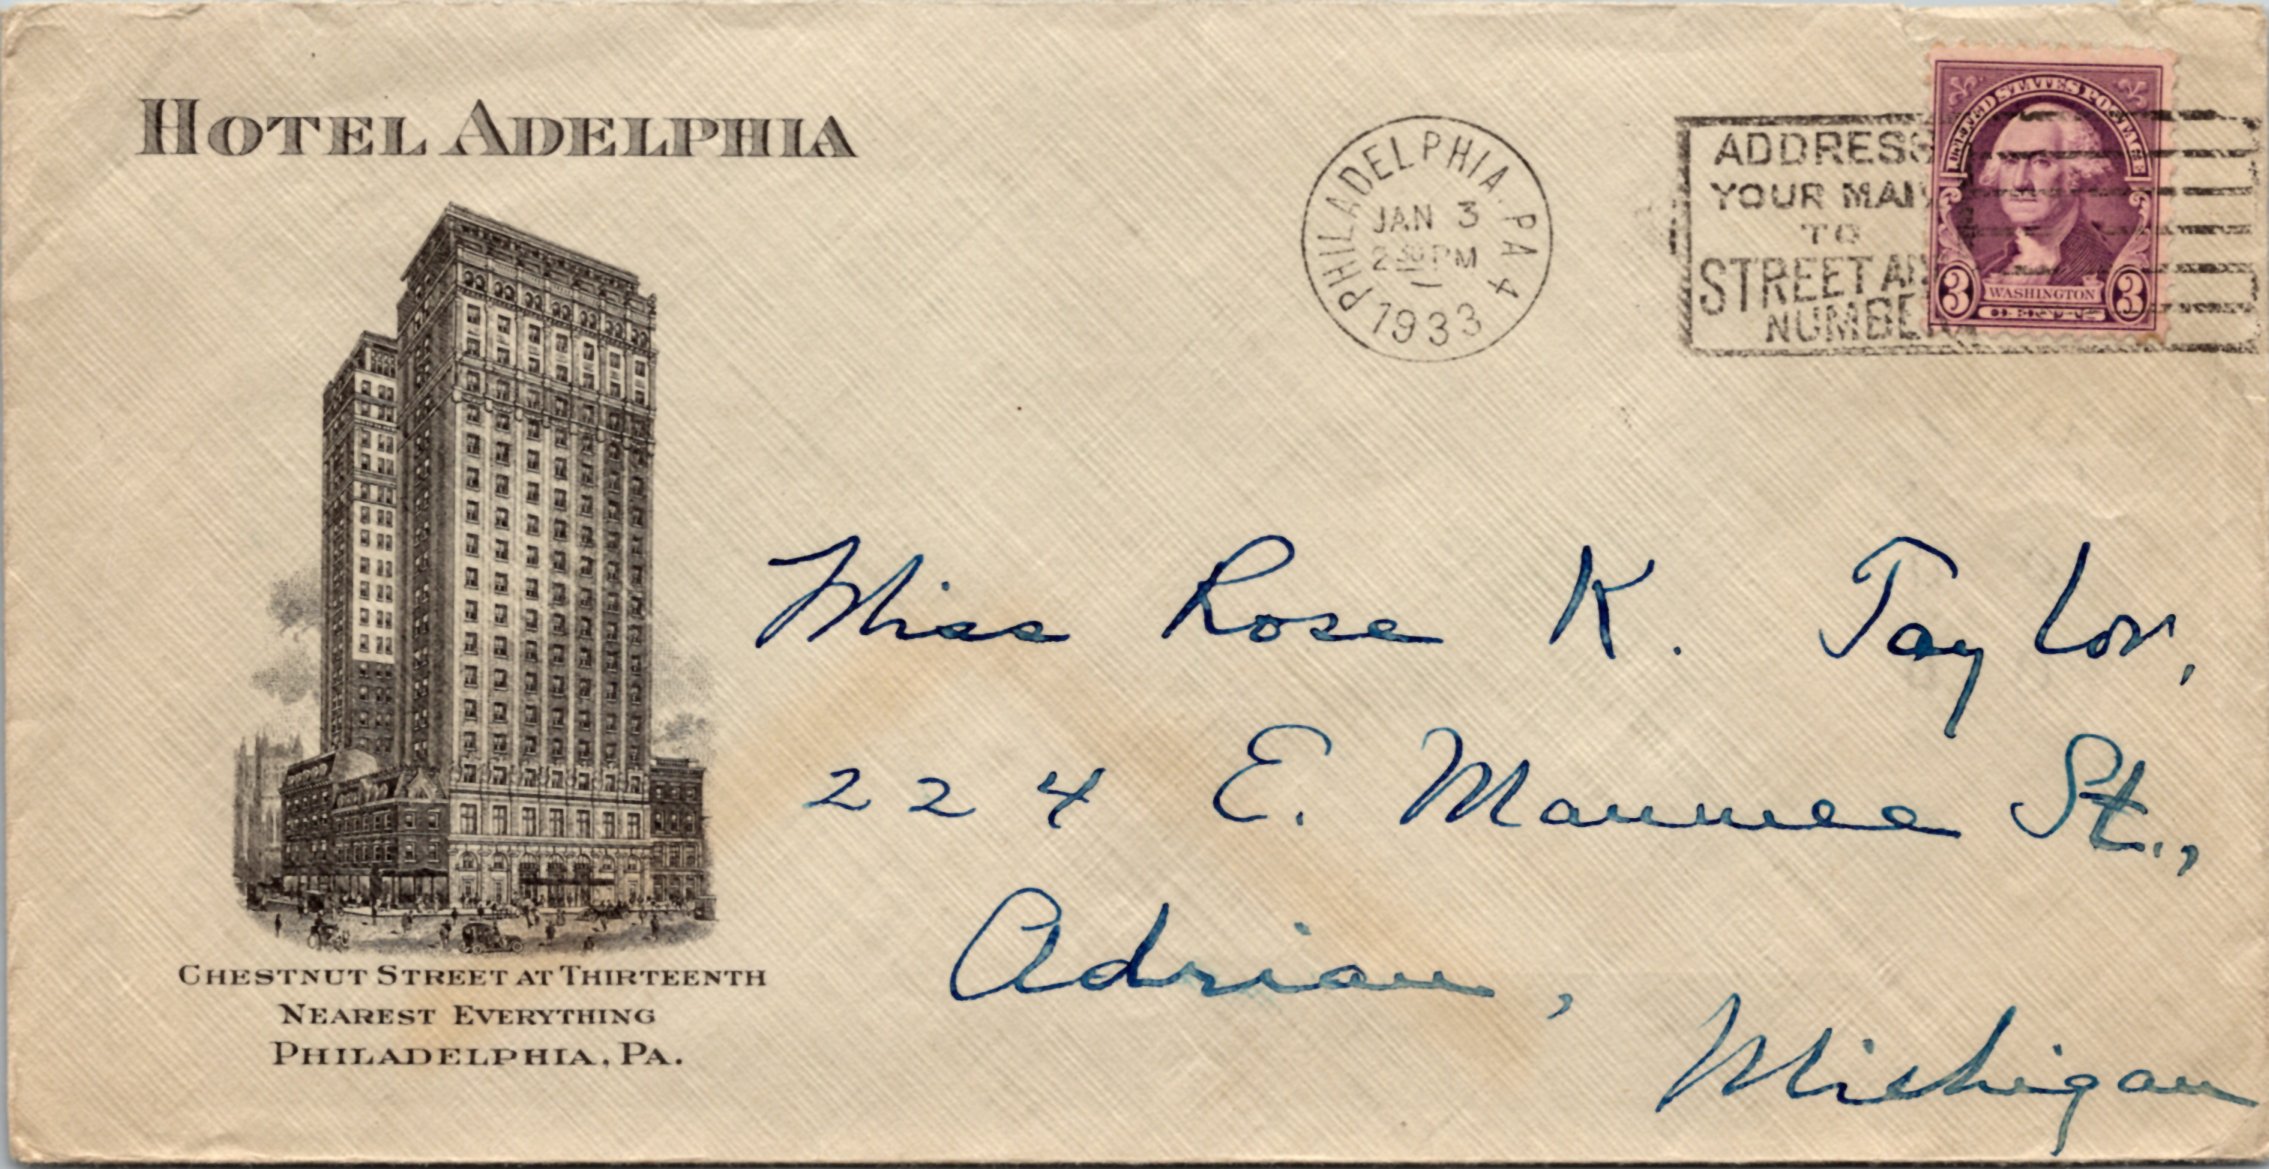 HOTEL ADELPHIA
PHILADELPHIA, PA 4
JAN 3
2 30 PM
1933
ADDRESS
YOUR MAIL
TO
STREET AND
NUMBER
UNITED STATES POSTAGE
3 WASHINGTON 3
CENTS
Miss Rose K. Taylor,
224 E. Maumee St.,
Adrian,
Michigan
CHESTNUT STREET AT THIRTEENTH
NEAREST EVERYTHING
PHILADELPHIA, PA.